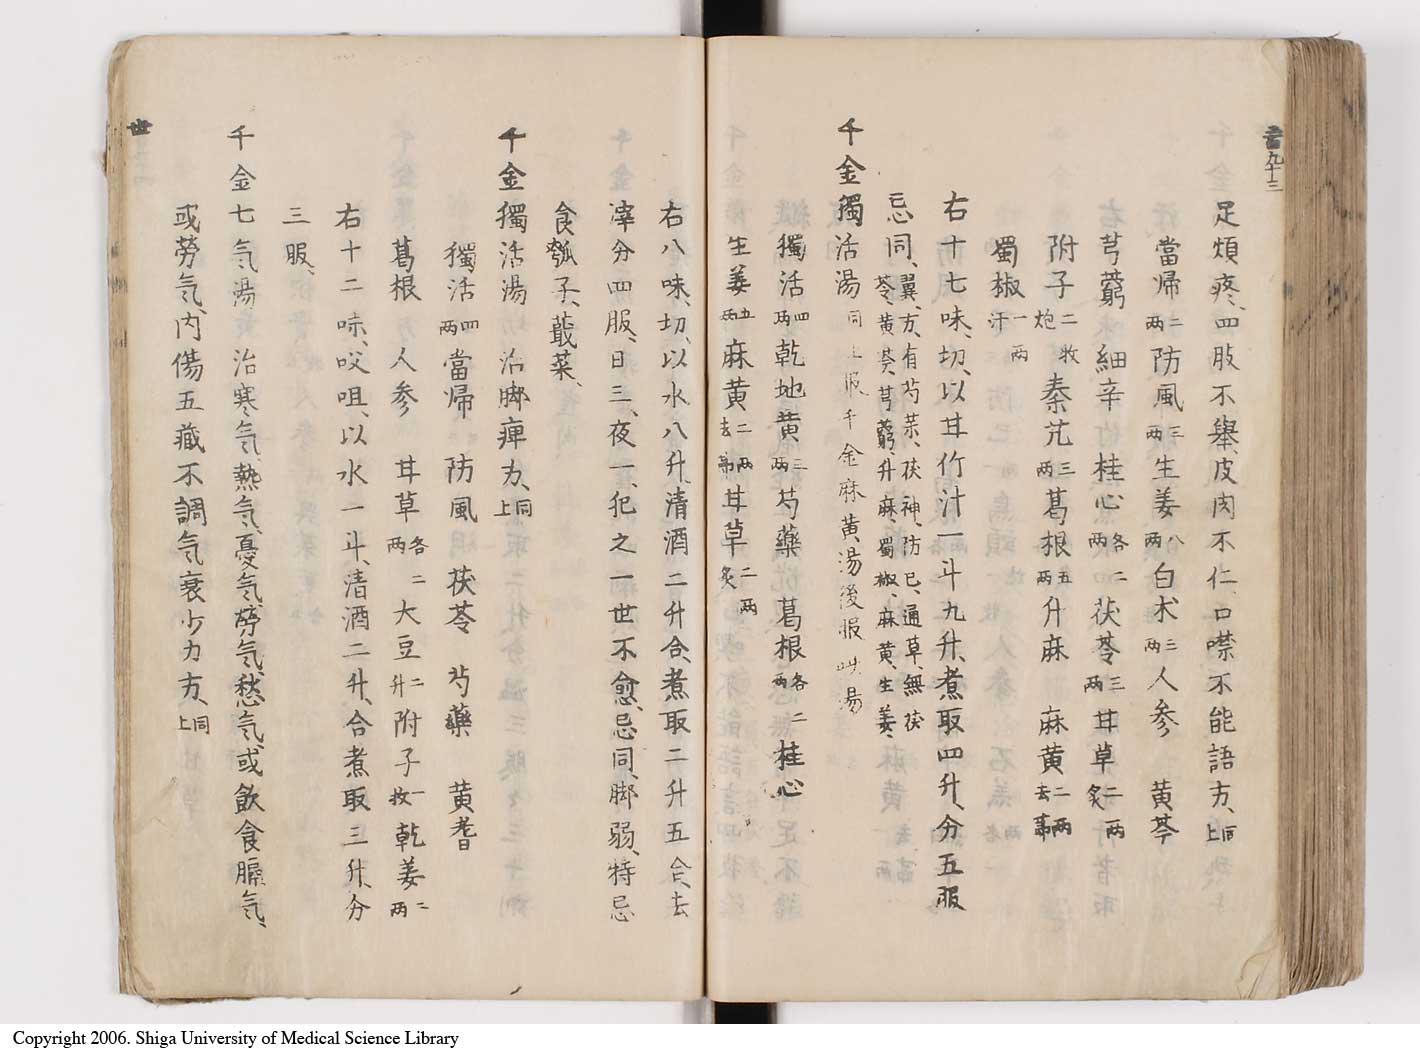 足煩疼、四肢不舉、皮肉不仁、口噤不能語方、同上
當帰二両 防風三両 生姜八両 白术三両 人参 黄芩
芎藭 細辛 桂心各二両 茯苓三両 甘草二両炙
附子二枚炮 秦艽三両 葛根五両 升麻 麻黄二両去節
蜀椒一両汗
右十七味、切、以甘竹汁一斗九升、煮取四升、分五服
忌同、翼、方、有芍薬、茯神、防已、通草、無茯
苓、黄芩、芎藭、升麻、蜀椒、麻黄、生姜、
千金獨活湯 同上服千金麻黄湯後服此湯
獨活四両 乾地黄三両 芍藥 葛根各二両 桂心
生姜五両 麻黄二両去節 甘草二両炙
右八味、切、以水八升、清酒二升合、煮取二升五合、去
滓分四服、日三、夜一、犯之一世不愈、忌同、脚弱、特忌
食瓠子、蕺菜、
千金獨活湯 治脚痺方、同上
獨活四両 當帰 防風 茯苓 芍藥 黄耆
葛根 人参 甘草各二両 大豆二升 附子一枚 乾姜二両
右十二味、㕮咀、以水一斗、清酒二升、合煮取三升、分
三服、
千金七気湯 治寒気、熱気、憂気、労気、愁気、或飲食膈気、
或勞気、内傷五藏不調気衰少力方、同上
九十三